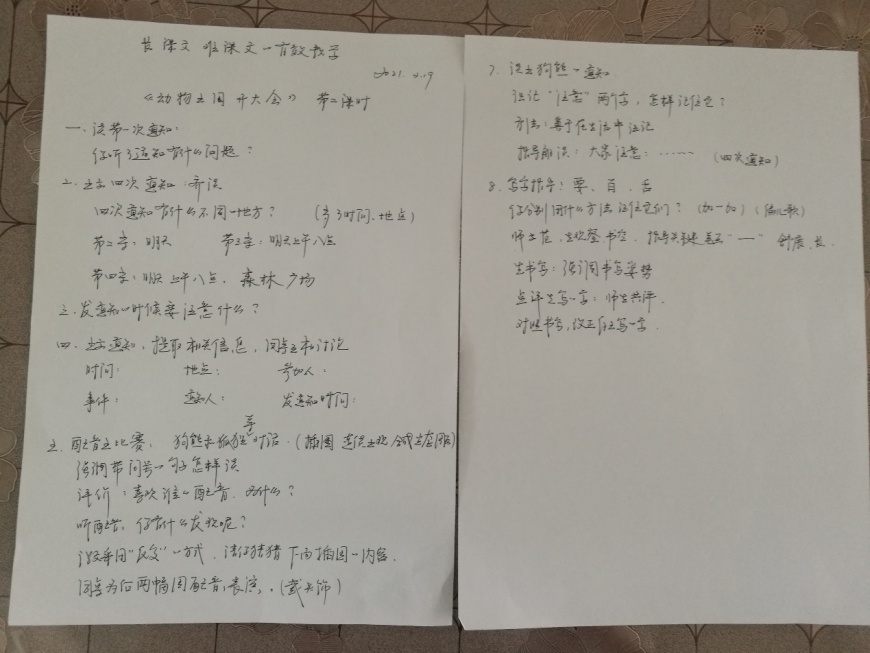 长课文 难课文的有效教学
2021.4.19
《动物王国开大会》 第二课时
一、读第一次通知:
你听了通知有什么问题?
二、出示四次通知:齐读
四次通知有什么不同的地方? (多了时间、地点)
第二字:明天 第三字:明天上午八点
第四字:明天上午八点、森林广场
三、发通知的时候要注意什么?
四、出示通知,提取相关信息,同桌互相讨论
时间: 地点: 参加人:
事件: 通知人: 发通知时间:
五、配音员比赛, 狗熊和狐狸等对话.(插图
强调带问号的句子怎样读
评价:喜欢谁的配音,为什么?
听配音,你有什么发现呢?
反复的方式,请你猜猜下面插图的内容.
同桌为后两幅图配音、表演.(戴头饰)
7、读出狗熊的通知
识记“注意”两个字,怎样记住它?
方法:善于在生活中识记
指导朗读:大家注意:…… (四次通知)
8、写字指导:要、百、舌
你分别用什么方法记住它们? (加一加)(儿歌)
师示范,生观察书空,指导关键笔画“一” 舒展、长.
生书写:强调书写姿势
点评生写的字:师生共评.
对照书写,改正自己写的字.